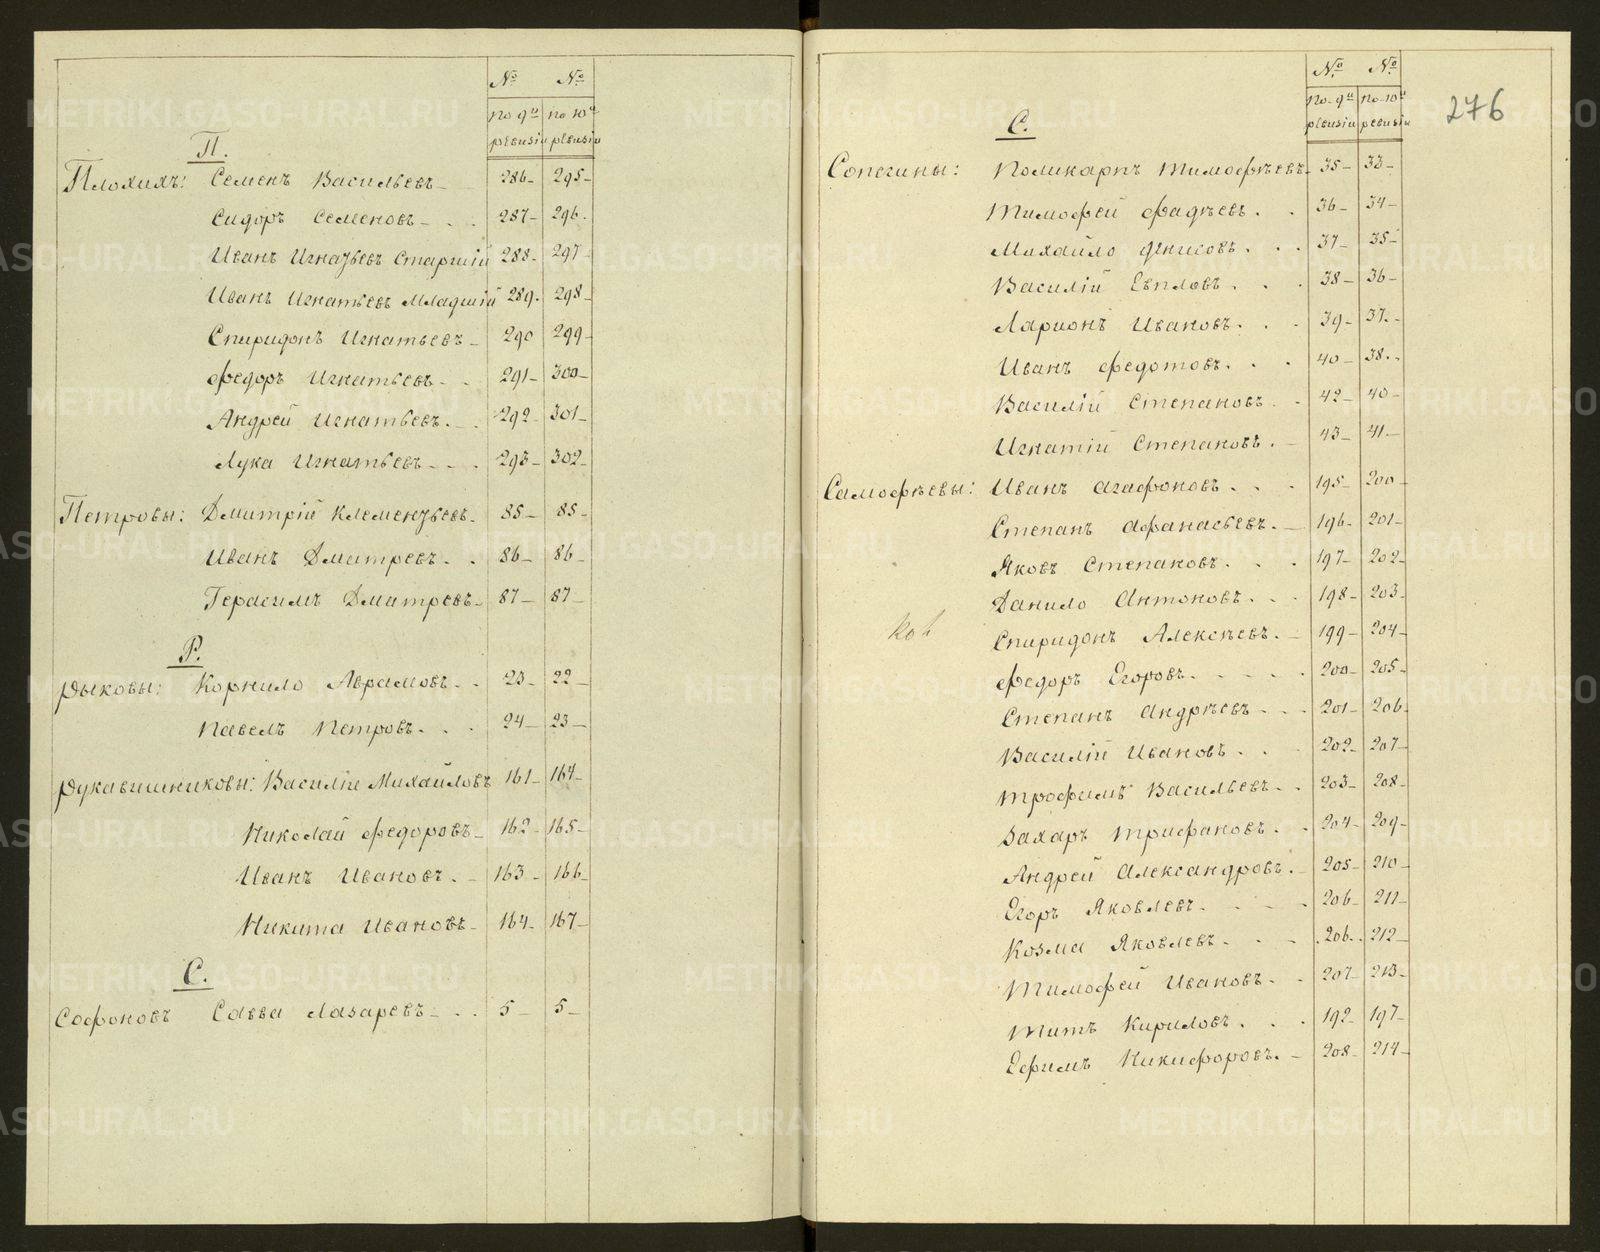 № №
по 9й по 10й
ревизіи ревизіи
П.
Плохихъ: Семенъ Васильевъ 286 295
Сидоръ Семеновъ 287 296
Иванъ Игнатьевъ Старшій 288 297
Иванъ Игнатьевъ Младшій 289 298
Спиридонъ Игнатьевъ 290 299
Федоръ Игнатьевъ 291 300
Андрей Игнатьевъ 292 301
Лука Игнатьевъ 293 302
Петровы: Дмитрій Клементьевъ 85 85
Иванъ Дмитревъ 86 86
Герасимъ Дмитревъ 87 87
Р.
Рыковы: Корнило Аврамовъ 23 22
Павелъ Петровъ 24 23
Рукавишниковы: Василіи Михайловъ 161 164
Николай Федоровъ 162 165
Иванъ Ивановъ 163 166
Никита Ивановъ 164 167
С.
Софоновъ Савва Лазаревъ 5 5
276
№ №
по 9й по 10й
ревизіи ревизіи
С.
Сопегины: Поликарпъ Тимофѣевъ 35 33
Тимофей Фадѣевъ 36 34
Михайло Денисовъ 37 35
Василій Евпловъ 38 36
Ларионъ Ивановъ 39 37
Иванъ Федотовъ 40 38
Василій Степановъ 42 40
Игнатій Степановъ 43 41
Самофѣевы: Иванъ Агафоновъ 195 200
Степанъ Афанасьевъ 196 201
Яковъ Степановъ 197 202
Данило Антоновъ 198 203
Спиридонъ Алексѣевъ 199 204
Федоръ Егоровъ 200 205
Степанъ Андрѣевъ 201 206
Василій Ивановъ 202 207
Трофимъ Васильевъ 203 208
Захаръ Трифановъ 204 209
Андрей Александровъ 205 210
Егоръ Яковлевъ 206 211
Козма Яковлевъ 206 212
Тимофей Ивановъ 207 213
Титъ Кириловъ 192 197
Ефимъ Никифоровъ 208 214
METRIKI.GASO-URAL.RU